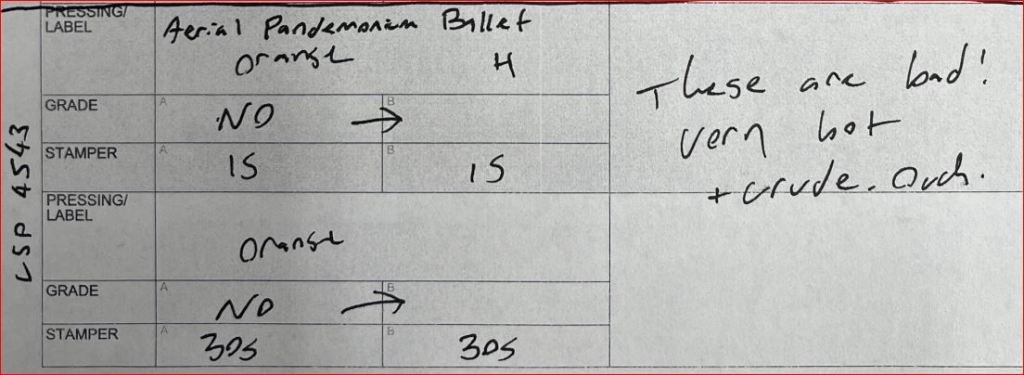 PRESSING/
LABEL
Aerial Pandemonium Ballet
Orange H
GRADE A NO → B
STAMPER A 1S B 1S
These are bad!
very hot
+ crude. Ouch.
LSP 4543
PRESSING/
LABEL
Orange
GRADE A NO → B
STAMPER A 30S B 30S